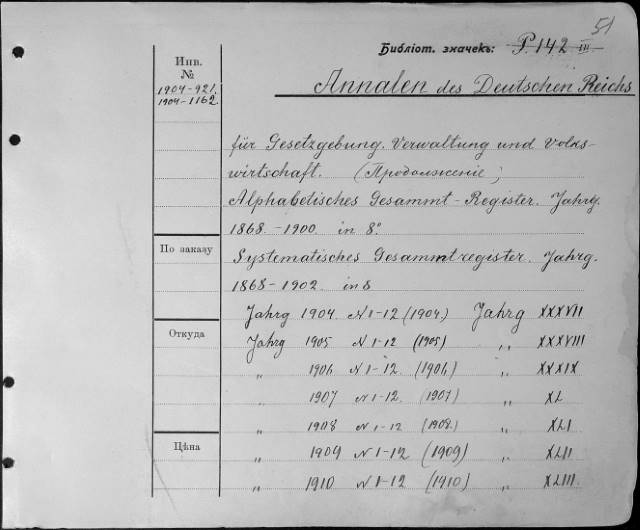 51
Библіот. значекъ: P. 142 III
Инв.
№
1904-921.
1904-1162.
Annalen des Deutschen Reichs
für Gesetzgebung. Verwaltung und Volks-
wirtschaft. (Продолженіе)
Alphabetisches Gesammt-Register. Jahrg.
1868.-1900. in 8º
По заказу
Systematisches Gesammtregister. Jahrg.
1868-1902. in 8
Jahrg 1904. N 1-12 (1904.) Jahrg XXXVII
Откуда
Jahrg 1905 N 1-12 (1905) „ XXXVIII
„ 1906 N 1-12. (1906.) „ XXXIX
„ 1907 N 1-12. (1907) „ XL
„ 1908 N 1-12 (1908.) „ XLI
Цѣна
„ 1909 N 1-12. (1909) „ XLII
„ 1910 N 1-12 (1910) „ XLIII.